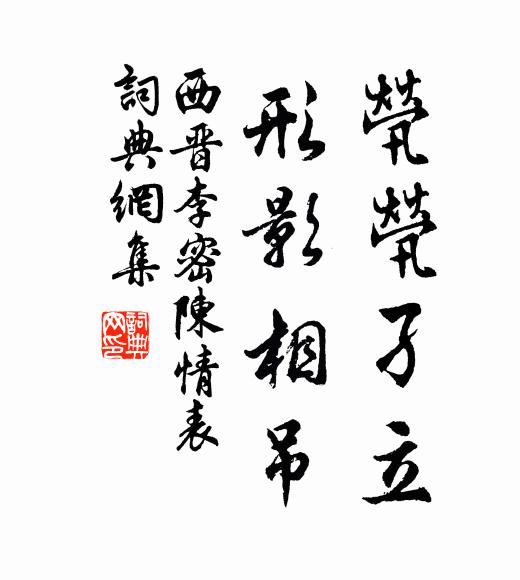 煢煢孑立
形影相吊
西晋李密陳情表
詞典網集
詞典網印